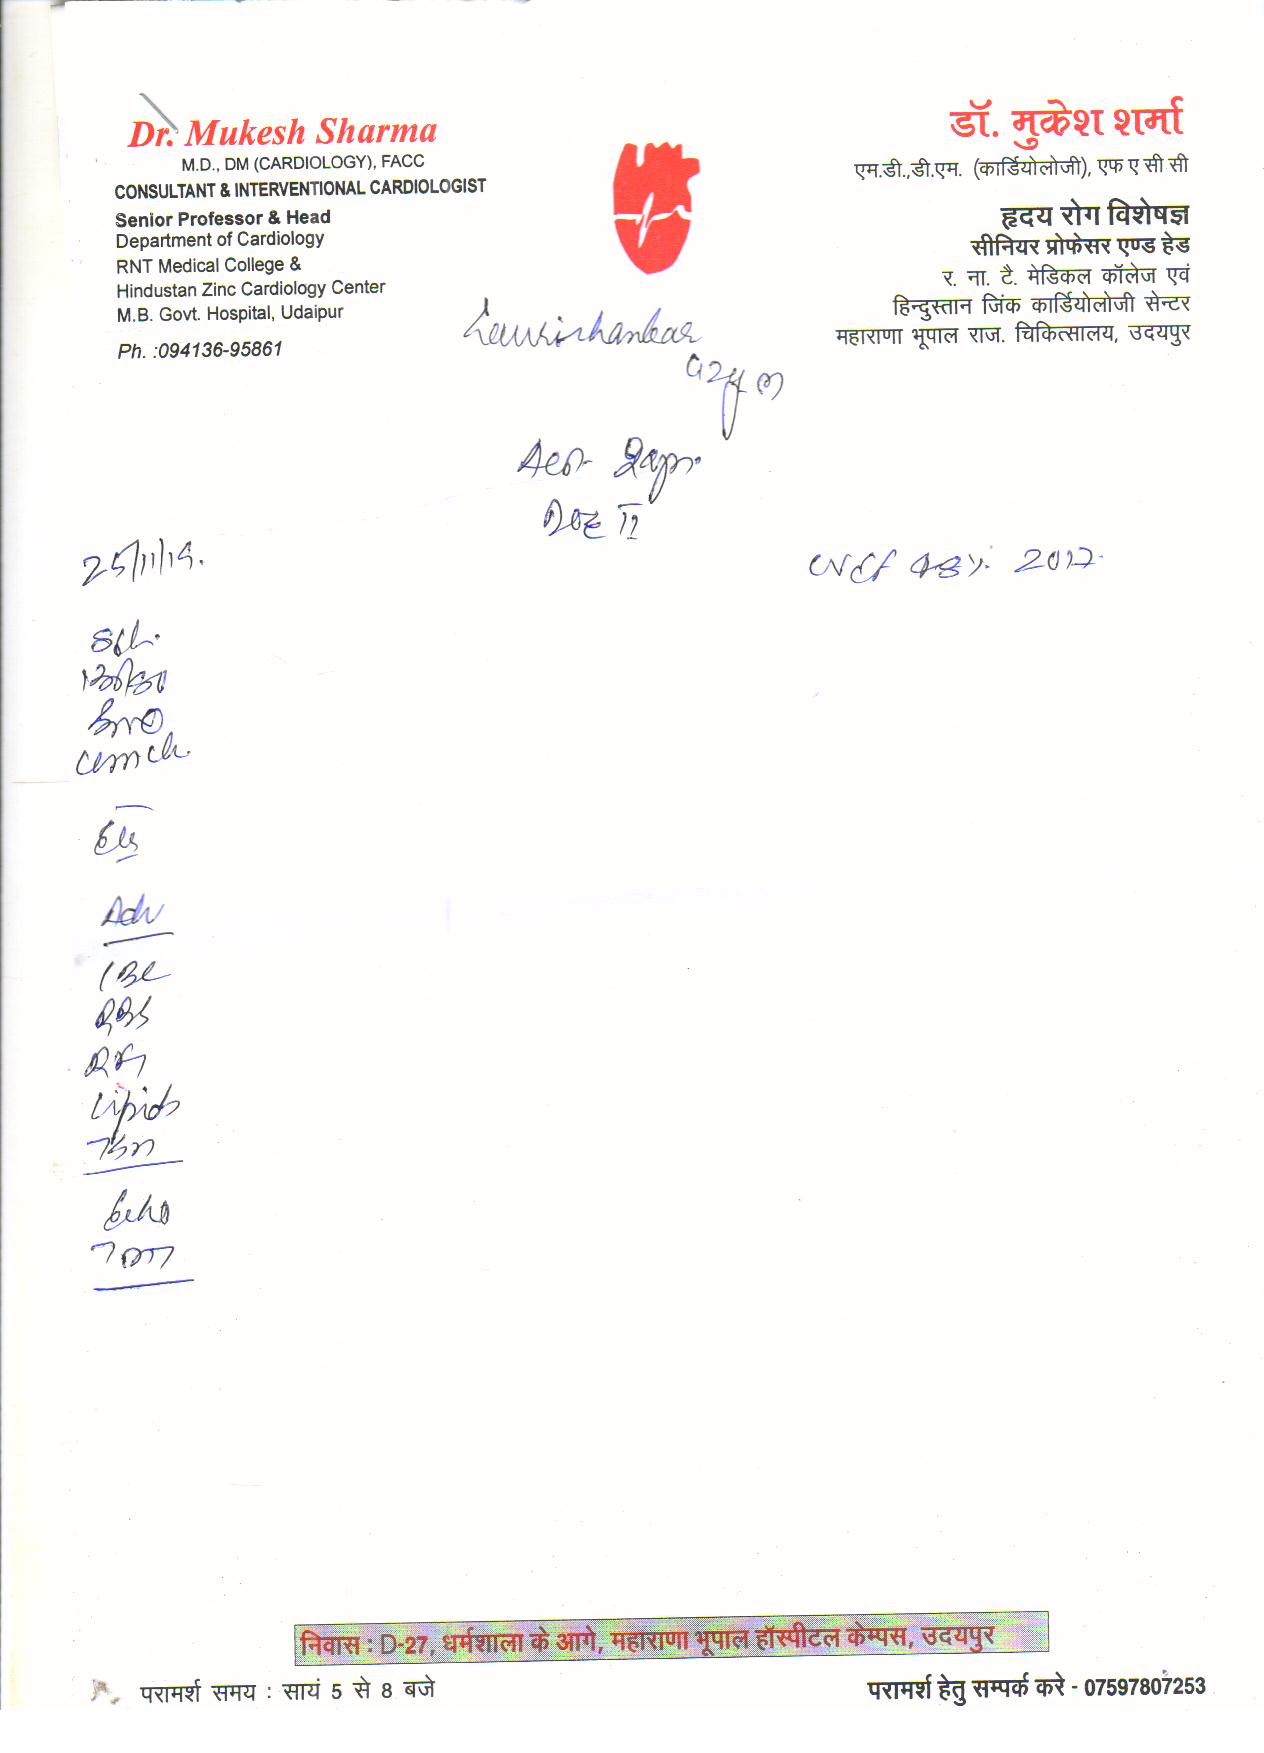 Dr. Mukesh Sharma
M.D., DM (CARDIOLOGY), FACC
CONSULTANT & INTERVENTIONAL CARDIOLOGIST
Senior Professor & Head
Department of Cardiology
RNT Medical College &
Hindustan Zinc Cardiology Center
M.B. Govt. Hospital, Udaipur
Ph. :094136-95861
डॉ. मुकेश शर्मा
एम.डी.,डी.एम. (कार्डियोलोजी), एफ ए सी सी
हृदय रोग विशेषज्ञ
सीनियर प्रोफेसर एण्ड हेड
र. ना. टै. मेडिकल कॉलेज एवं
हिन्दुस्तान जिंक कार्डियोलोजी सेन्टर
महाराणा भूपाल राज. चिकित्सालय, उदयपुर
DOE II
25/11/19.
LVEF 48%. 2017.
Adv
CBC
RBS
RFT
Lipids
TSH
Echo
TMT
निवास : D-27, धर्मशाला के आगे, महाराणा भूपाल हॉस्पीटल केम्पस, उदयपुर
परामर्श समय : सायं 5 से 8 बजे
परामर्श हेतु सम्पर्क करे - 07597807253